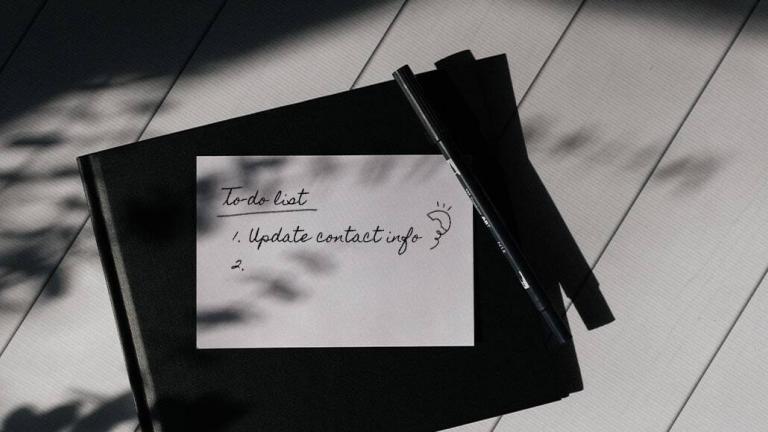 To-do list
1. Update contact info
2.